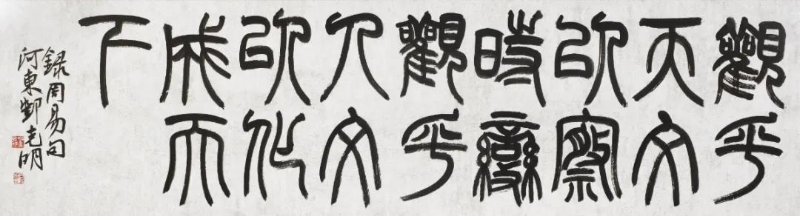 觀乎
天文
以察
時變
觀乎
人文
以化
成天
下
錄周易句
河東克明